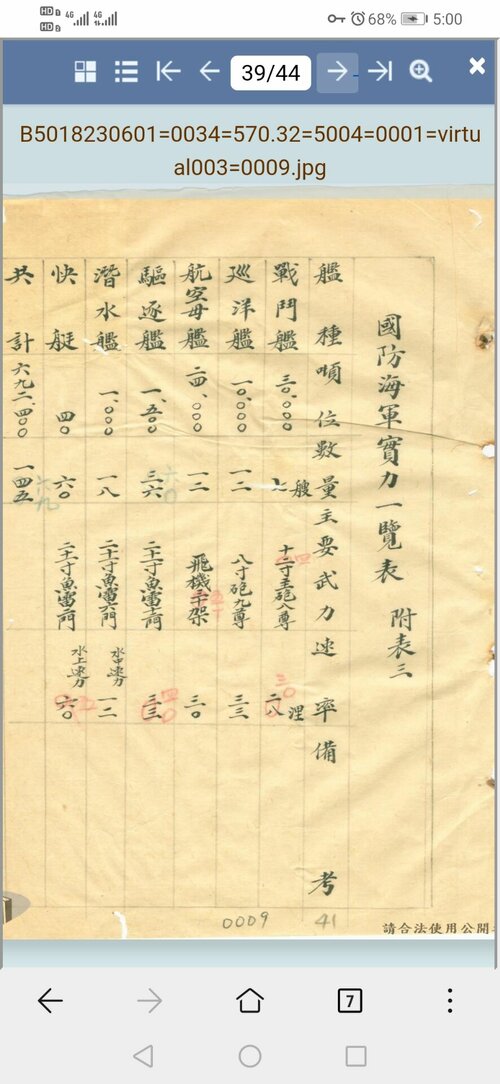 HD 1 4G 4G HD 2 68% 5:00
39/44
B5018230601=0034=570.32=5004=0001=virtu
al003=0009.jpg
國防海軍實力一覽表 附表三
艦種 噸位 數量 主要武力 速率 備考
戰鬥艦 三〇.〇〇〇 七艘 主砲八尊 二八浬 三〇
巡洋艦 一〇.〇〇〇 一二 八寸砲九尊 三三
航空母艦 二四.〇〇〇 一二 飛機 十架 三〇
驅逐艦 一.五〇〇 三六 六〇 二十一寸魚雷 門 三三 四〇
潛水艦 一.〇〇〇 一八 二十一寸魚雷六門 水中速力 一二
快艇 四〇 六〇 二十一寸魚雷二門 水上速力 六〇
共計 六九二.四〇〇 一四五 六九
0009 41
請合法使用公開
7